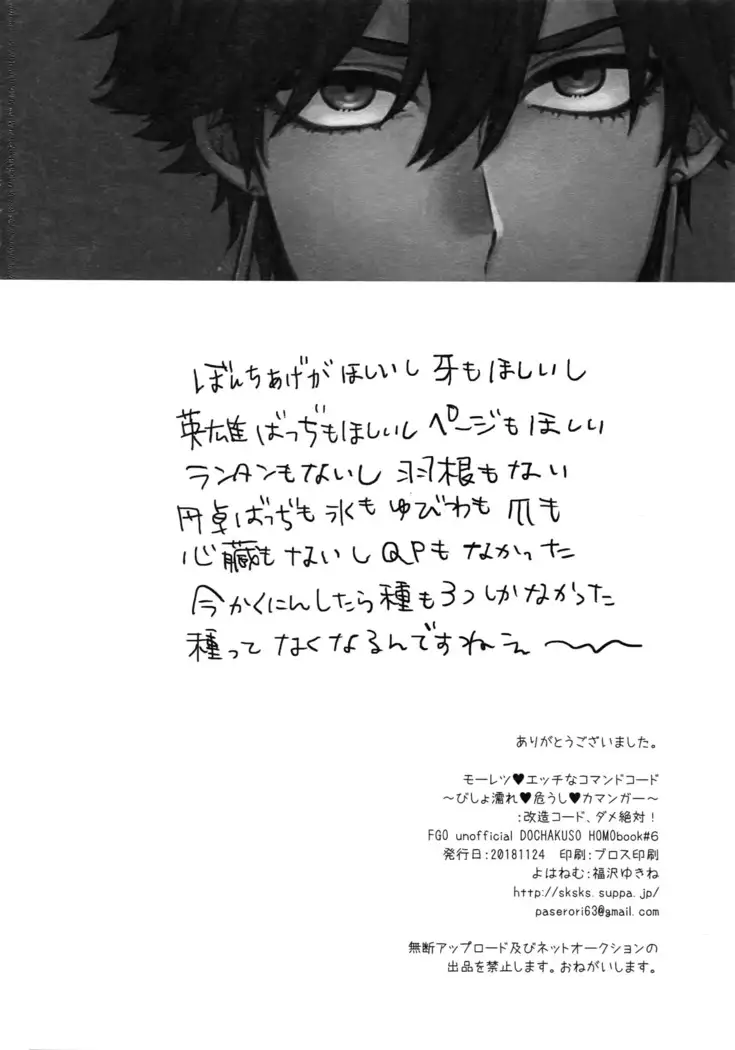 ぼんちあげがほしいし 牙もほしいし
英雄ばっぢもほしいし ページもほしい
ランタンもないし 羽根もない
円卓ばっぢも 氷も ゆびわも 爪も
心臓もないし QPもなかった
今かくにんしたら種も3つしかなかった
種って なくなるんですねぇ〜〜
ありがとうございました。
モーレツ♥エッチなコマンドコード
～びしょ濡れ♥危うし♥カマンガー～
:改造コード、ダメ絶対！
FGO unofficial DOCHAKUSO HOMObook#6
発行日:20181124 印刷:ブロス印刷
よはねむ:福沢ゆきね
http://sksks.suppa.jp/
paserori63@gmail.com
無断アップロード及びネットオークションの
出品を禁止します。おねがいします。